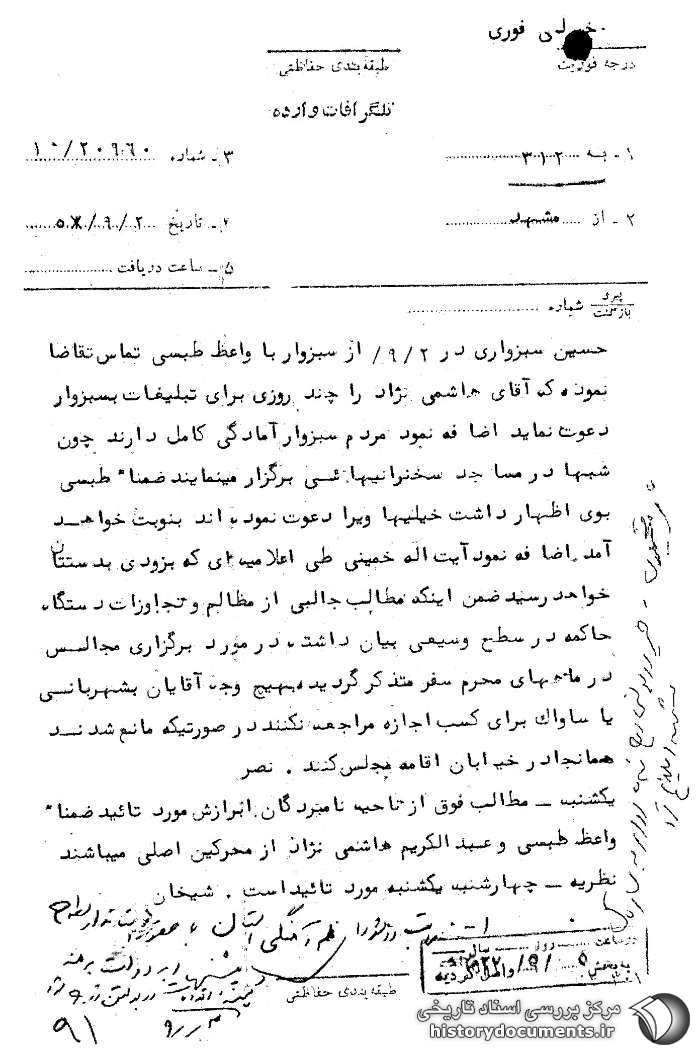 خیلی فوری
درجه فوریت
طبقه‌بندی حفاظتی
تلگرافات وارده
۱ - به ... ۳۱۲
۳ - شماره ۱۰/۲۰۶۶۰
۲ - از ... مشهد
۴ - تاریخ ۵۷/۹/۲
۵ - ساعت دریافت
پیرو
بازگشت
شماره
حسین سبزواری در ۹/۲/ از سبزوار با واعظ طبسی تماس تقاضا
نموده که آقای هاشمی نژاد را چند روزی برای تبلیغات بسبزوار
دعوت نماید اضافه نمود مردم سبزوار آمادگی کامل دارند چون
شبها در مساجد سخنرانیهائی برگزار مینمایند ضمنا" طبسی
بوی اظهار داشت خیلیها ویرا دعوت نموده اند بنوبت خواهد
آمد. اضافه نمود آیت اله خمینی طی اعلامیه ای که بزودی بدستتان
خواهد رسید ضمن اینکه مطالب جالبی از مظالم و تجاوزات دستگاه
حاکمه در سطح وسیعی بیان داشته، در مورد برگزاری مجالس
در ماههای محرم سفر متذکر گردیده بهیچ وجه آقایان بشهربانی
یا ساواک برای کسب اجازه مراجعه نکنند در صورتیکه مانع شدند
همانجا در خیابان اقامه مجلس کنند . نصر
یکشنبه – مطالب فوق از ناحیه نامبردگان ابرازش مورد تائید ضمنا"
واعظ طبسی و عبدالکریم هاشمی نژاد از محرکین اصلی میباشند
نظریه – چهارشنبه یکشنبه مورد تائید است . شیخان
در ساعت روز سال
به بخش ۳۱۲ واصل گردید
طبقه‌بندی حفاظتی
۹۱
مرکز بررسی اسناد تاریخی
historydocuments.ir